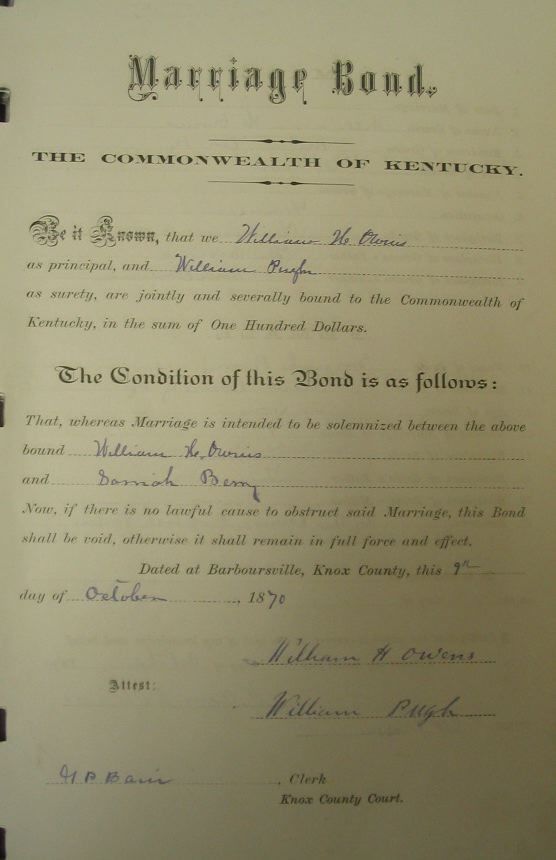 Marriage Bond.
THE COMMONWEALTH OF KENTUCKY.
Be it Known, that we William H. Owins
as principal, and William Pugh
as surety, are jointly and severally bound to the Commonwealth of
Kentucky, in the sum of One Hundred Dollars.
The Condition of this Bond is as follows:
That, whereas Marriage is intended to be solemnized between the above
bound William H. Owins
and Berry
Now, if there is no lawful cause to obstruct said Marriage, this Bond
shall be void, otherwise it shall remain in full force and effect.
Dated at Barboursville, Knox County, this 9th
day of October, 1870
William H Owens
Attest:
William Pugh
, Clerk
Knox County Court.